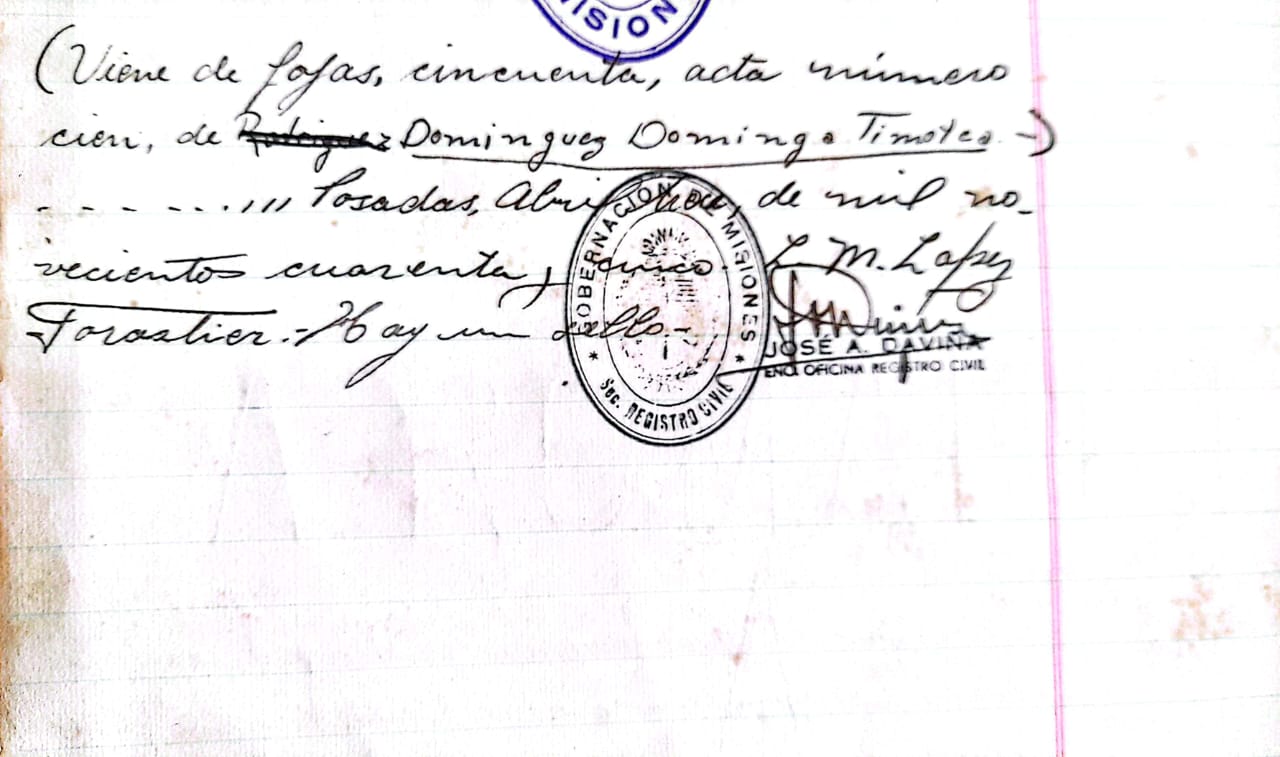 MISION
(Viene de fojas, cincuenta, acta número
cien, de Rodriguez Dominguez Domingo Timoteo -)
- - - - - . . ,,, Posadas, Abril de mil no-
vecientos cuarenta y cinco. L. M. Lopez
Forastier.- Hay un sello-
GOBERNACION DE MISIONES
* Sec. REGISTRO CIVIL *
JOSÉ A. DAVIÑA
ENC. OFICINA REGISTRO CIVIL